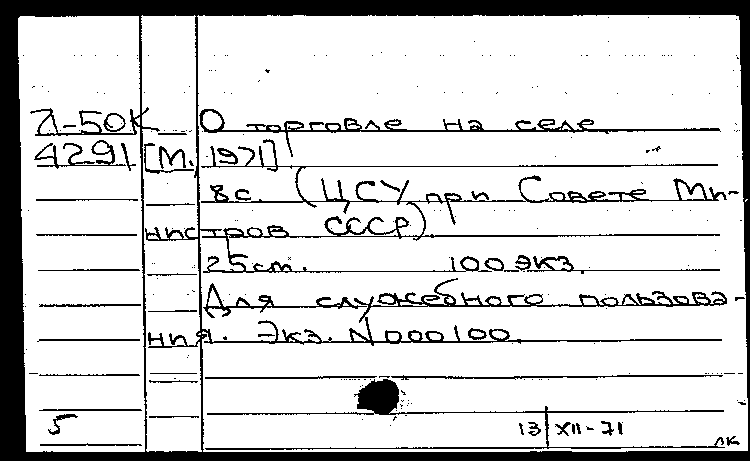 Л-50К О торговле на селе.
4291 [М., 1971]
8с. (ЦСУ при Совете Ми-
нистров СССР).
25см. 100 экз.
Для служебного пользова-
ния. Экз. N000100.
5 13/XII-71
лк